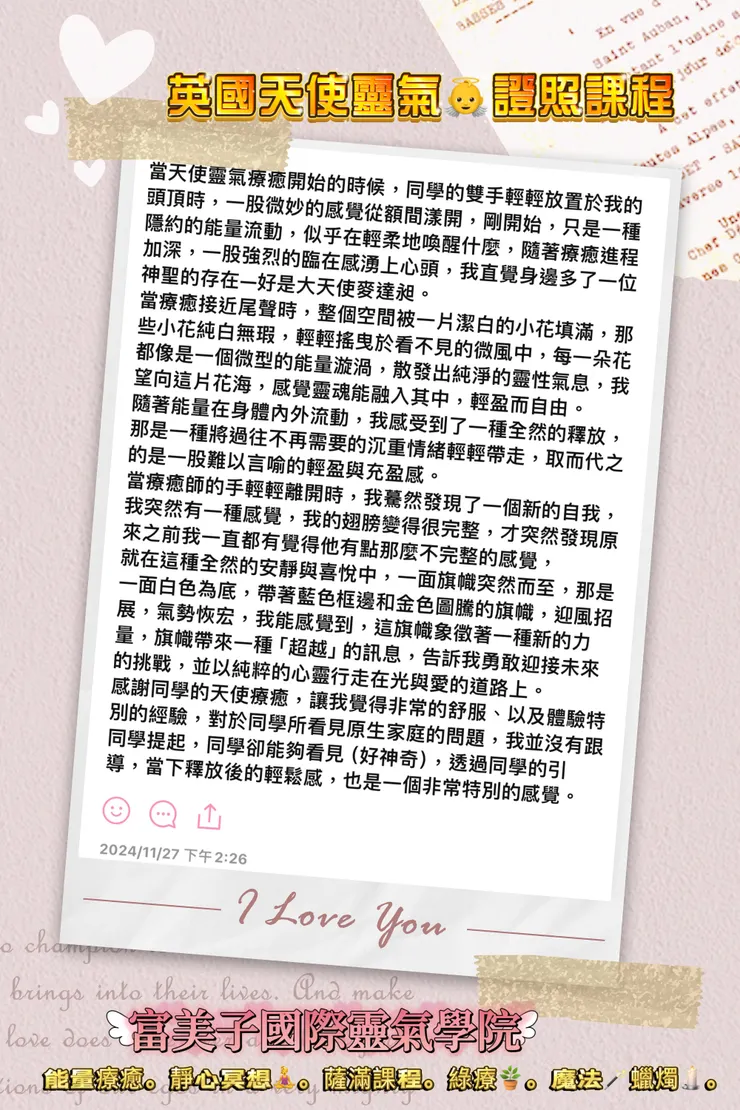 英國天使靈氣👼證照課程
En vue d
BASSES
Saint Auban, il
tant l'usine a
jour déc
A cet effet
autes Alpes,
当天使靈氣療癒開始的時候，同學的雙手輕輕放置於我的
頭頂時，一股微妙的感覺從額間漾開，剛開始，只是一種
隱約的能量流動，似乎在輕柔地喚醒什麼，隨著療癒進程
加深，一股強烈的臨在感湧上心頭，我直覺身邊多了一位
神聖的存在—好是大天使麥達昶。
當療癒接近尾聲時，整個空間被一片潔白的小花填滿，那
些小花純白無瑕，輕輕搖曳於看不見的微風中，每一朵花
都像是一個微型的能量漩渦，散發出純淨的靈性氣息，我
望向這片花海，感覺靈魂能融入其中，輕盈而自由。
隨著能量在身體內外流動，我感受到了一種全然的釋放，
那是一種將過往不再需要的沉重情緒輕輕帶走，取而代之
的是一股難以言喻的輕盈與充盈感。
當療癒師的手輕輕離開時，我驀然發現了一個新的自我，
我突然有一種感覺，我的翅膀變得很完整，才突然發現原
來之前我一直都有覺得他有點那麼不完整的感覺，
就在這種全然的安靜與喜悅中，一面旗幟突然而至，那是
一面白色為底，帶著藍色框邊和金色圖騰的旗幟，迎風招
展，氣勢恢宏，我能感覺到，這旗幟象徵著一種新的力
量，旗幟帶來一種「超越」的訊息，告訴我勇敢迎接未來
的挑戰，並以純粹的心靈行走在光與愛的道路上。
感謝同學的天使療癒，讓我覺得非常的舒服、以及體驗特
別的經驗，對於同學所看見原生家庭的問題，我並沒有跟
同學提起，同學卻能夠看見（好神奇），透過同學的引
導，當下釋放後的輕鬆感，也是一個非常特別的感覺。
2024/11/27 下午2:26
I Love You
brings into their lives. And make
love does
富美子國際靈氣學院
能量療癒。靜心冥想🧘。薩滿課程。綠療🪴。魔法🪄蠟燭🕯。